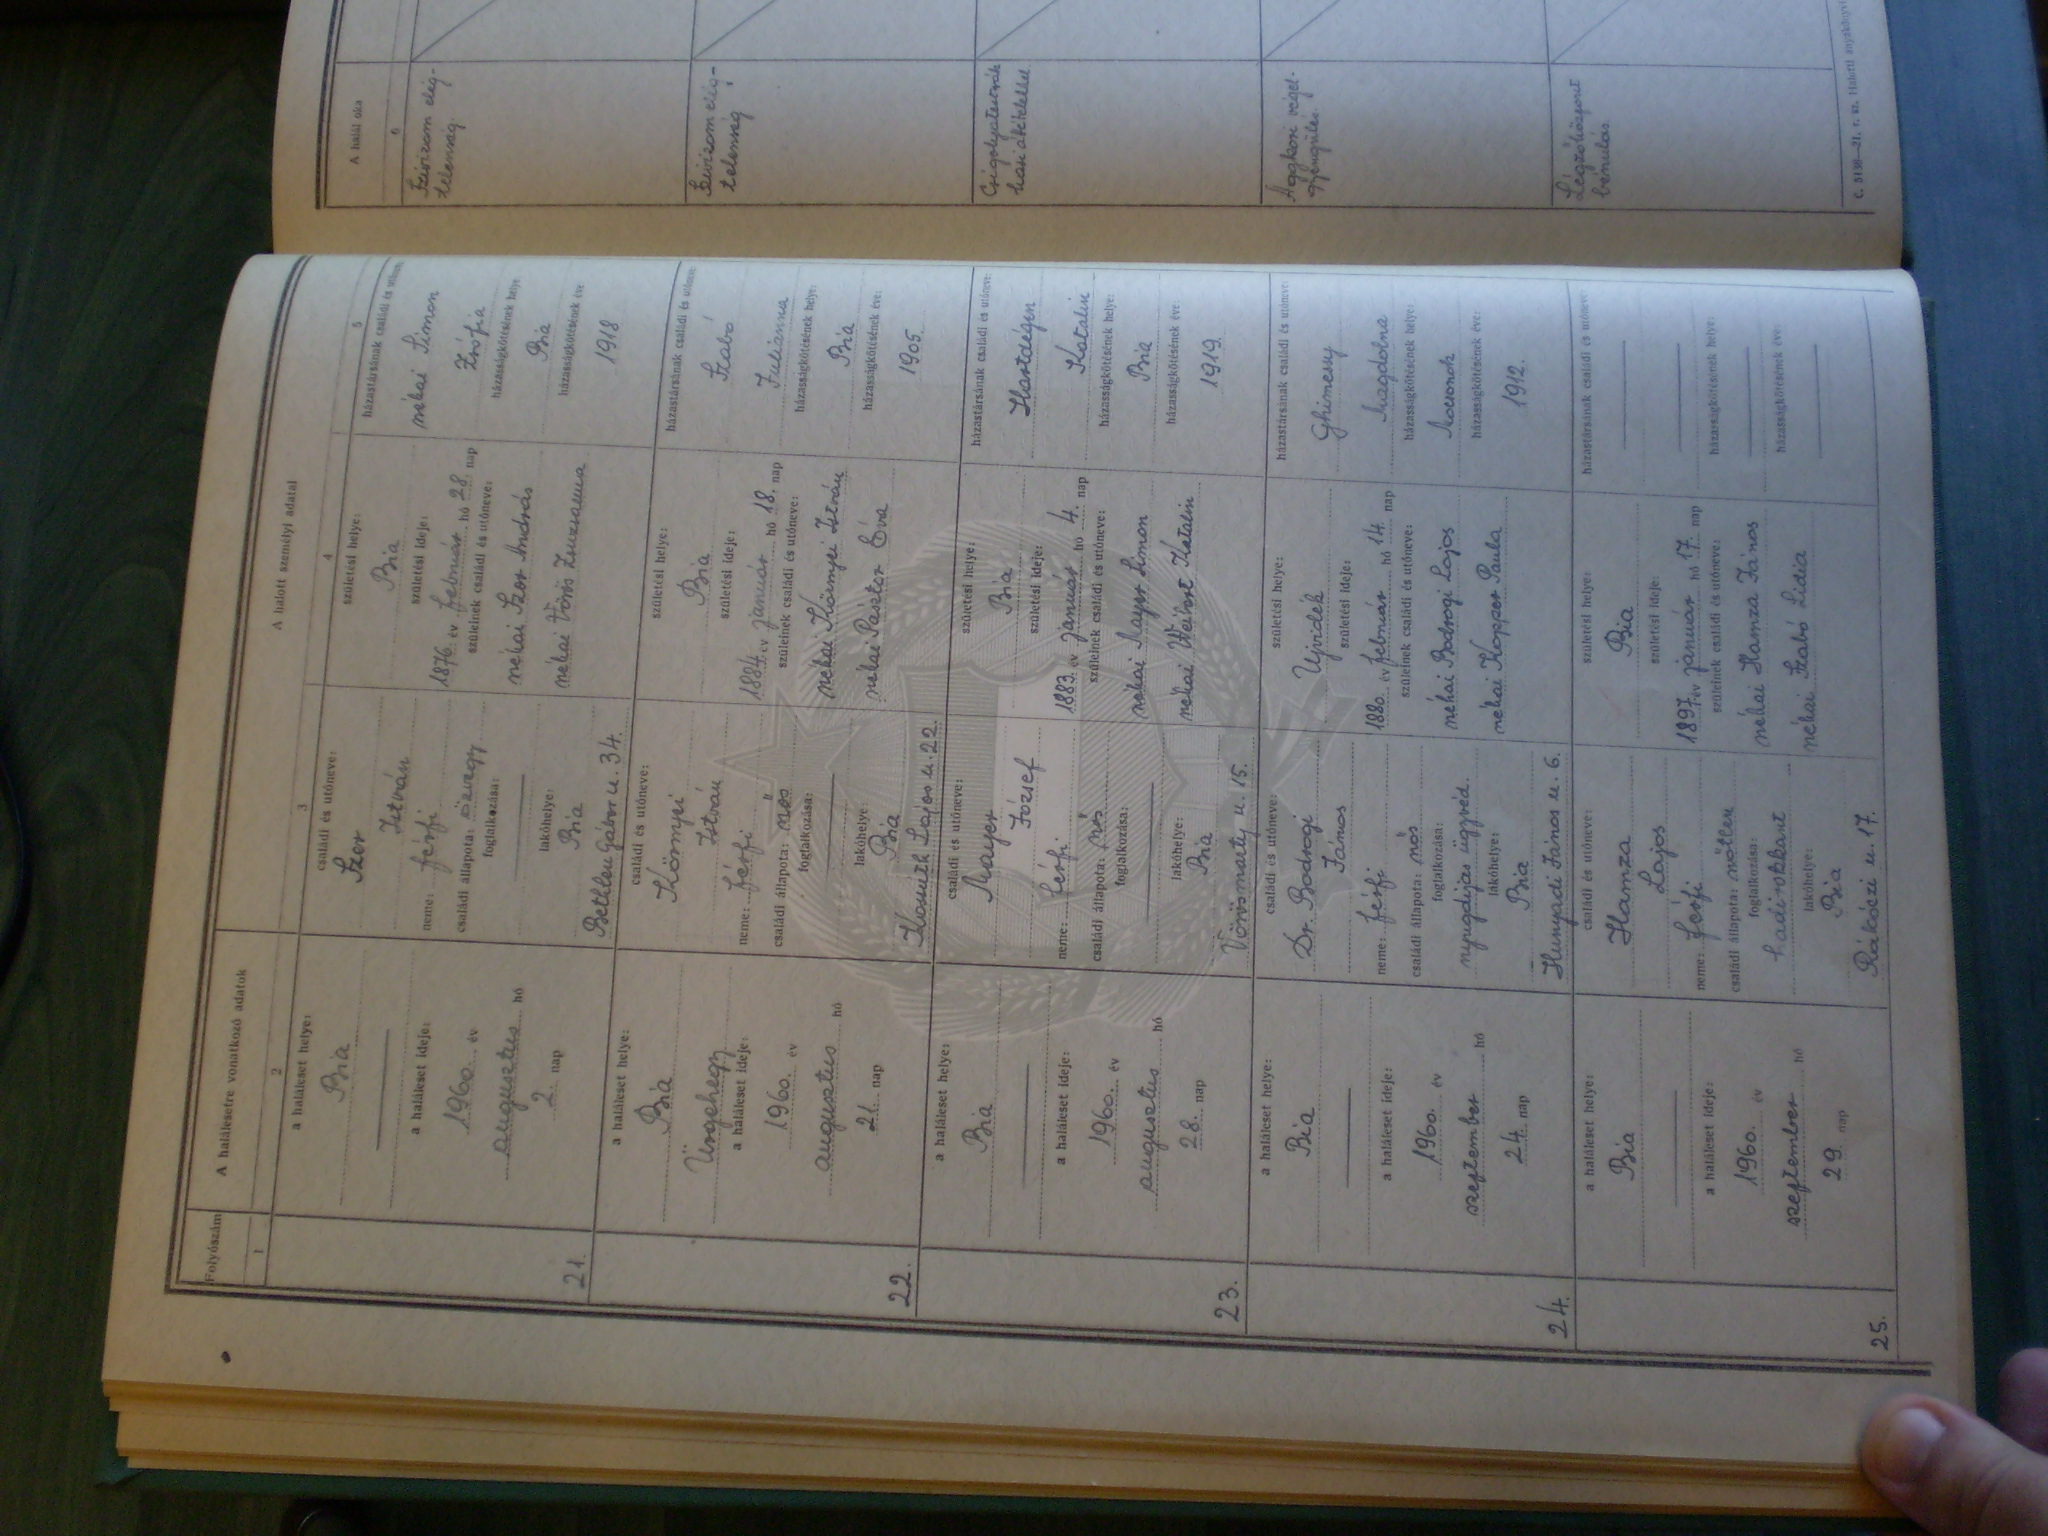 Folyószám
A halálesetre vonatkozó adatok
A halott személyi adatai
1
2
3
4
5
a haláleset helye:
Bia
a haláleset ideje:
1960. év
augusztus hó
2. nap
21.
családi és utóneve:
Szer
István
neme: férfi
családi állapota: özvegy
foglalkozása:
lakóhelye:
Bia
Bethlen Gábor u. 34.
születési helye:
Bia
születési ideje:
1876. év február hó 28. nap
szüleinek családi és utóneve:
néhai Szer András
néhai Vörös Zsuzsanna
házastársának családi és utóneve:
néhai Simon
Zsófia
házasságkötésének helye:
Bia
házasságkötésének éve:
1918
a haláleset helye:
Bia
Ürgehegy
a haláleset ideje:
1960. év
augusztus hó
21. nap
22.
családi és utóneve:
Könnyei
István
neme: férfi
családi állapota: nős
foglalkozása:
lakóhelye:
Bia
Kossuth Lajos u. 22.
születési helye:
Bia
születési ideje:
1884. év január hó 18. nap
szüleinek családi és utóneve:
néhai Könnyei István
néhai Pásztor Éva
házastársának családi és utóneve:
Szabó
Julianna
házasságkötésének helye:
Bia
házasságkötésének éve:
1905
a haláleset helye:
Bia
a haláleset ideje:
1960. év
augusztus hó
28. nap
23.
családi és utóneve:
Mayer
József
neme: férfi
családi állapota: nős
foglalkozása:
lakóhelye:
Bia
Vörösmarty u. 15.
születési helye:
Bia
születési ideje:
1883. év január hó 4. nap
szüleinek családi és utóneve:
néhai Mayer Simon
néhai Katalin
házastársának családi és utóneve:
Hartdégen
Katalin
házasságkötésének helye:
Bia
házasságkötésének éve:
1919.
a haláleset helye:
Bia
a haláleset ideje:
1960. év
szeptember hó
24. nap
24.
családi és utóneve:
Dr. Bodrogi
János
neme: férfi
családi állapota: nős
foglalkozása:
nyugdíjas ügyvéd.
lakóhelye:
Bia
Hunyadi János u. 6.
születési helye:
Ujvidék
születési ideje:
1880. év február hó 14. nap
szüleinek családi és utóneve:
néhai Bodrogi Lajos
néhai Kopper Paula
házastársának családi és utóneve:
Ghimessy
Magdolna
házasságkötésének helye:
Mocsonok
házasságkötésének éve:
1912.
a haláleset helye:
Bia
a haláleset ideje:
1960. év
szeptember hó
29. nap
25.
családi és utóneve:
Hamza
Lajos
neme: férfi
családi állapota: nőtlen
foglalkozása:
hadirokkant
lakóhelye:
Bia
Rákóczi u. 17.
születési helye:
Bia
születési ideje:
1897. év január hó 17. nap
szüleinek családi és utóneve:
néhai Hamza János
néhai Szabó Lidia
házastársának családi és utóneve:
házasságkötésének helye:
házasságkötésének éve:
A halál oka
6
Szivizom elég-
telenség.
Szivizom elég-
telenség
Csigolyatestrák
hasi áttétellel
Aggkori végel-
gyengülés.
Légzőközpont
bénulás.